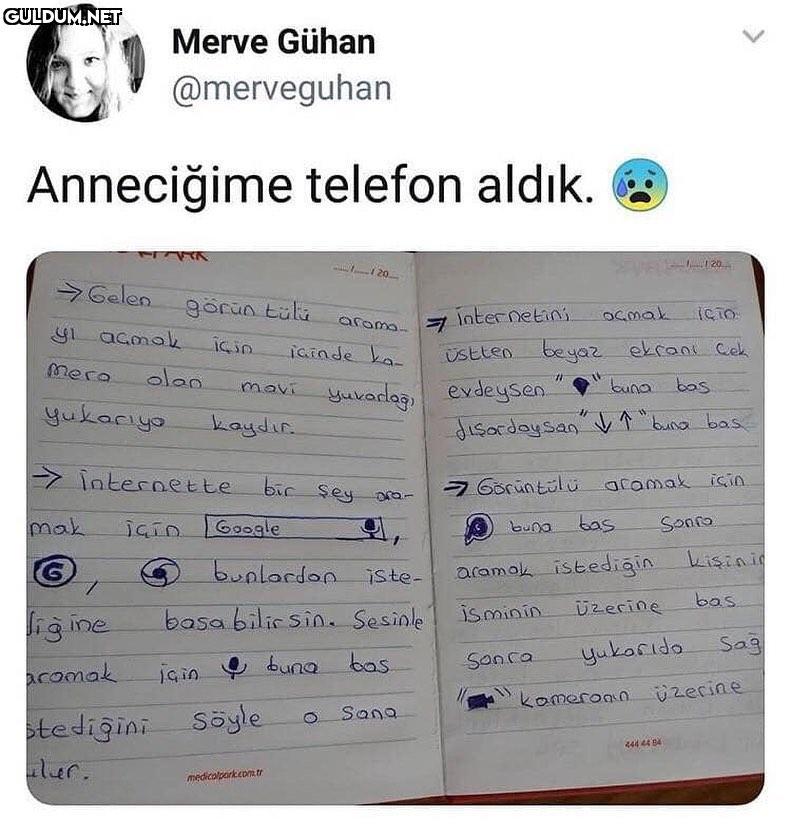 GULDUM.NET
Merve Gühan
@merveguhan
Anneciğime telefon aldık. 😰
.../...../20....
→ Gelen görüntülü arama-
yı açmak için içinde ka-
mera olan mavi yuvarlağı
yukarıya kaydır.
→ internette bir şey ara-
mak için Google ,
G , bunlardan iste-
diğine basabilirsin. Sesinle
aramak için buna bas
istediğini söyle o sana
medicalpark.com.tr
..../...../20....
→ internetini açmak için
üstten beyaz ekranı çek
evdeysen " " buna bas
dışardaysan "↓↑" buna bas
→ Görüntülü aramak için
buna bas sonra
aramak istediğin kişinin
isminin üzerine bas
sonra yukarıda sağ
" " kameranın üzerine
444 44 84